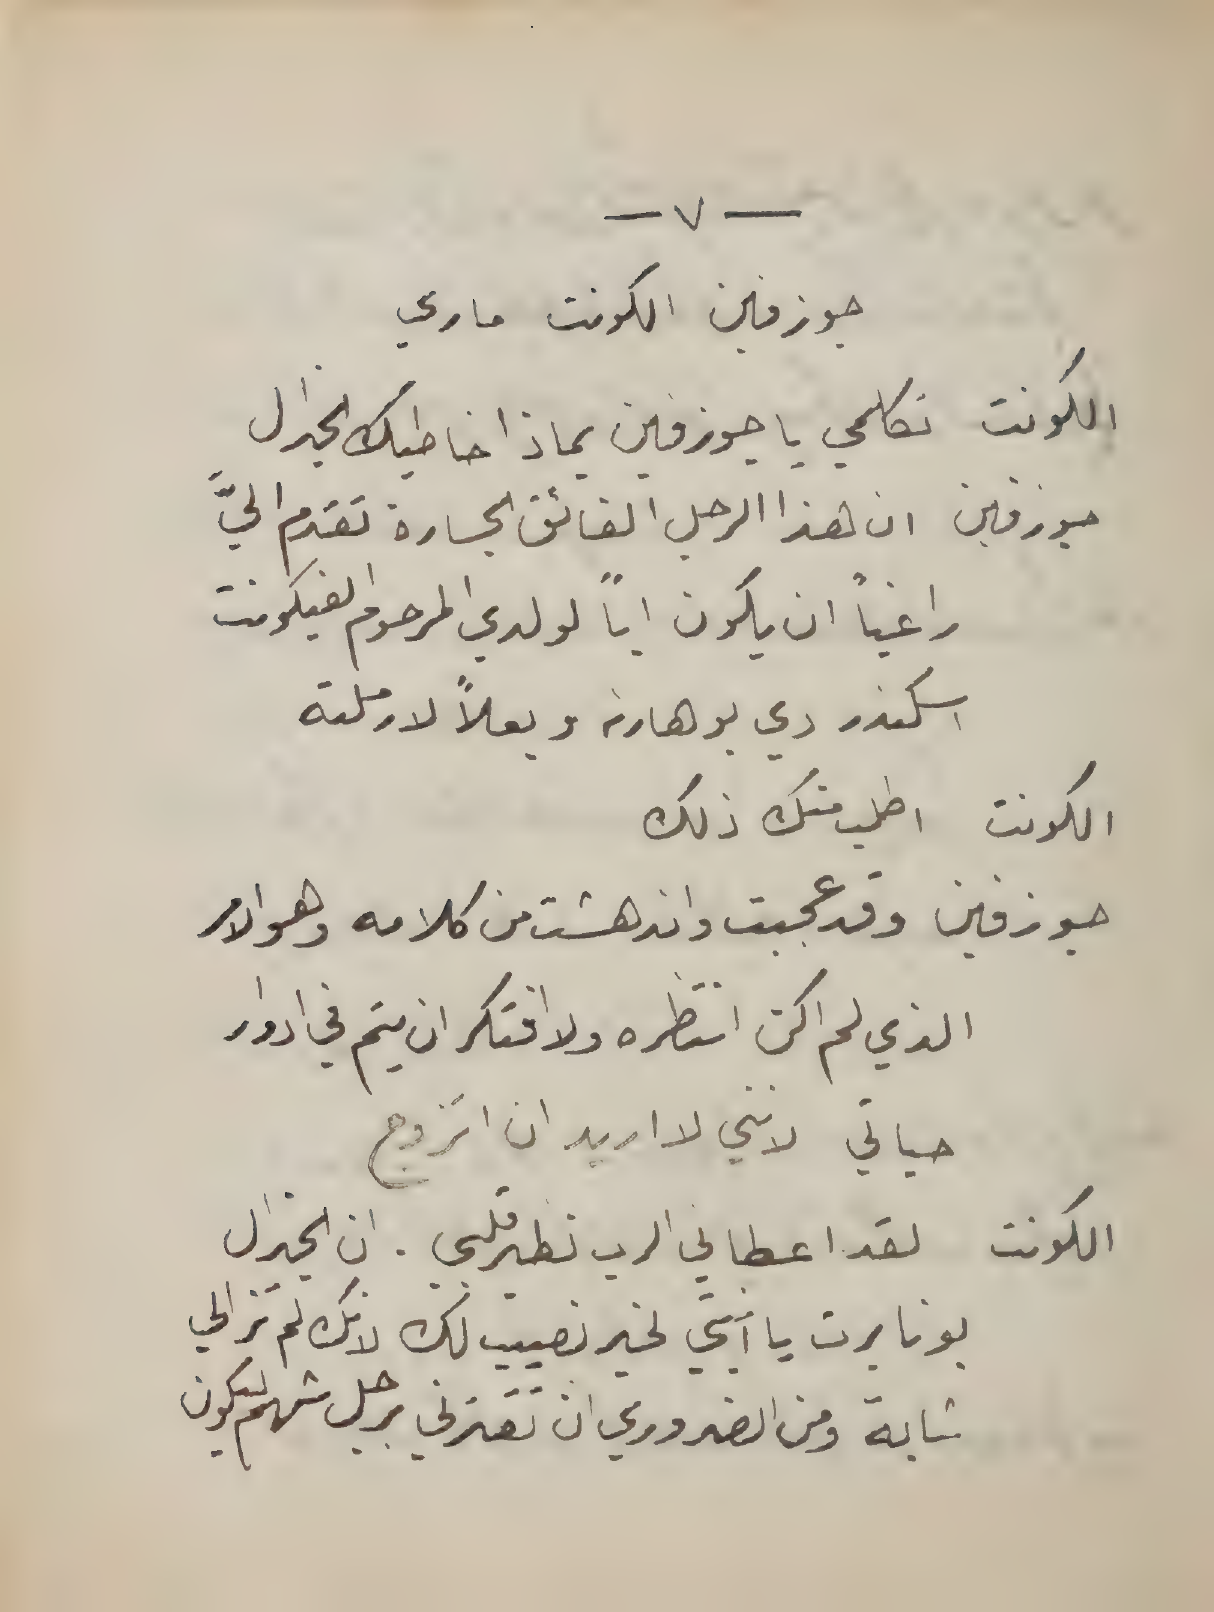 — ٧ —
جوزفين الكونت ماري
الكونت تكلمي يا جوزفين بماذا خاطبك الجنرال
جوزفين ان هذا الرجل الفائق الجسارة تقدم اليَّ
راغباً ان يكون اباً لولدي المرحوم الفيكونت
اسكندر دي بوهارنه وبعلاً لارملته
الكونت اطلب منك ذلك
جوزفين وقد عجبت واندهشت من كلامه وهو الامر
الذي لم اكن انتظره ولا افتكر ان يتم في ادوار
حياتي لانني لا اريد ان اتزوج
الكونت لقد اعطاني الرب نظير قلبي . ان الجنرال
بونابرت يا أبنتي لخير نصيب لك لانك لم تزالي
شابة ومن الضروري ان تقترني برجل شهم ليكون